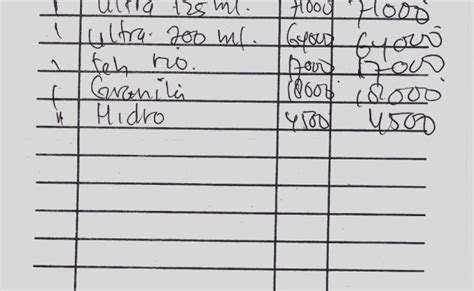 1 Ultra 125 ml. 71000 71000
1 Ultra. 200 ml. 64000 64000
1 Teh rio. 17000 17000
1 Granita 18000 18000
11 Hidro 4500 4500